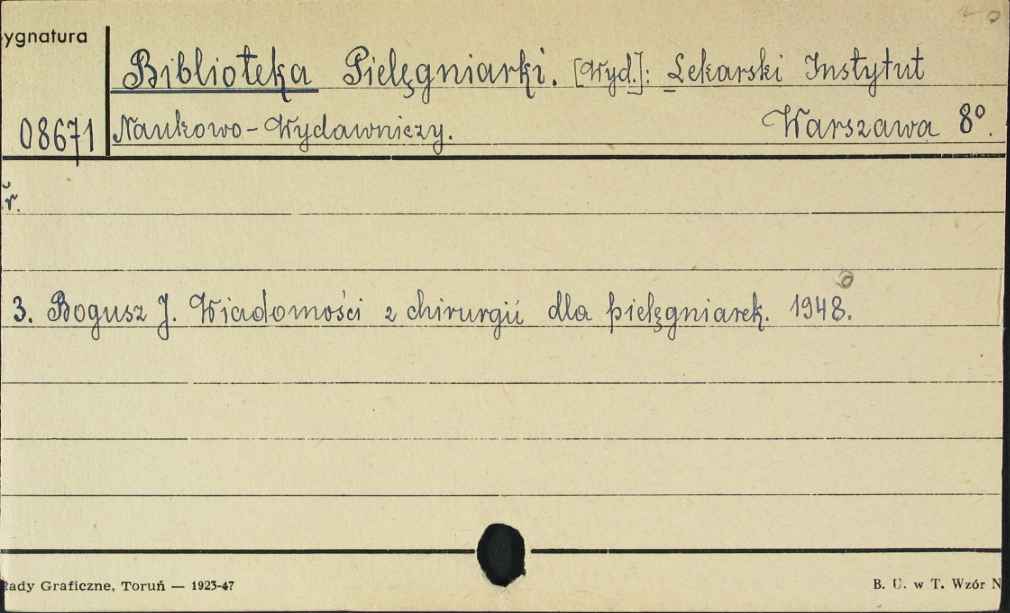 ygnatura
Biblioteka Pielęgniarki. [Wyd.]: Lekarski Instytut
08671 Naukowo-Wydawniczy. Warszawa 8°.
r.
3. Bogusz J. Wiadomości z chirurgii dla pielęgniarek. 1948.
łady Graficzne, Toruń — 1923-47 B. U. w T. Wzór N